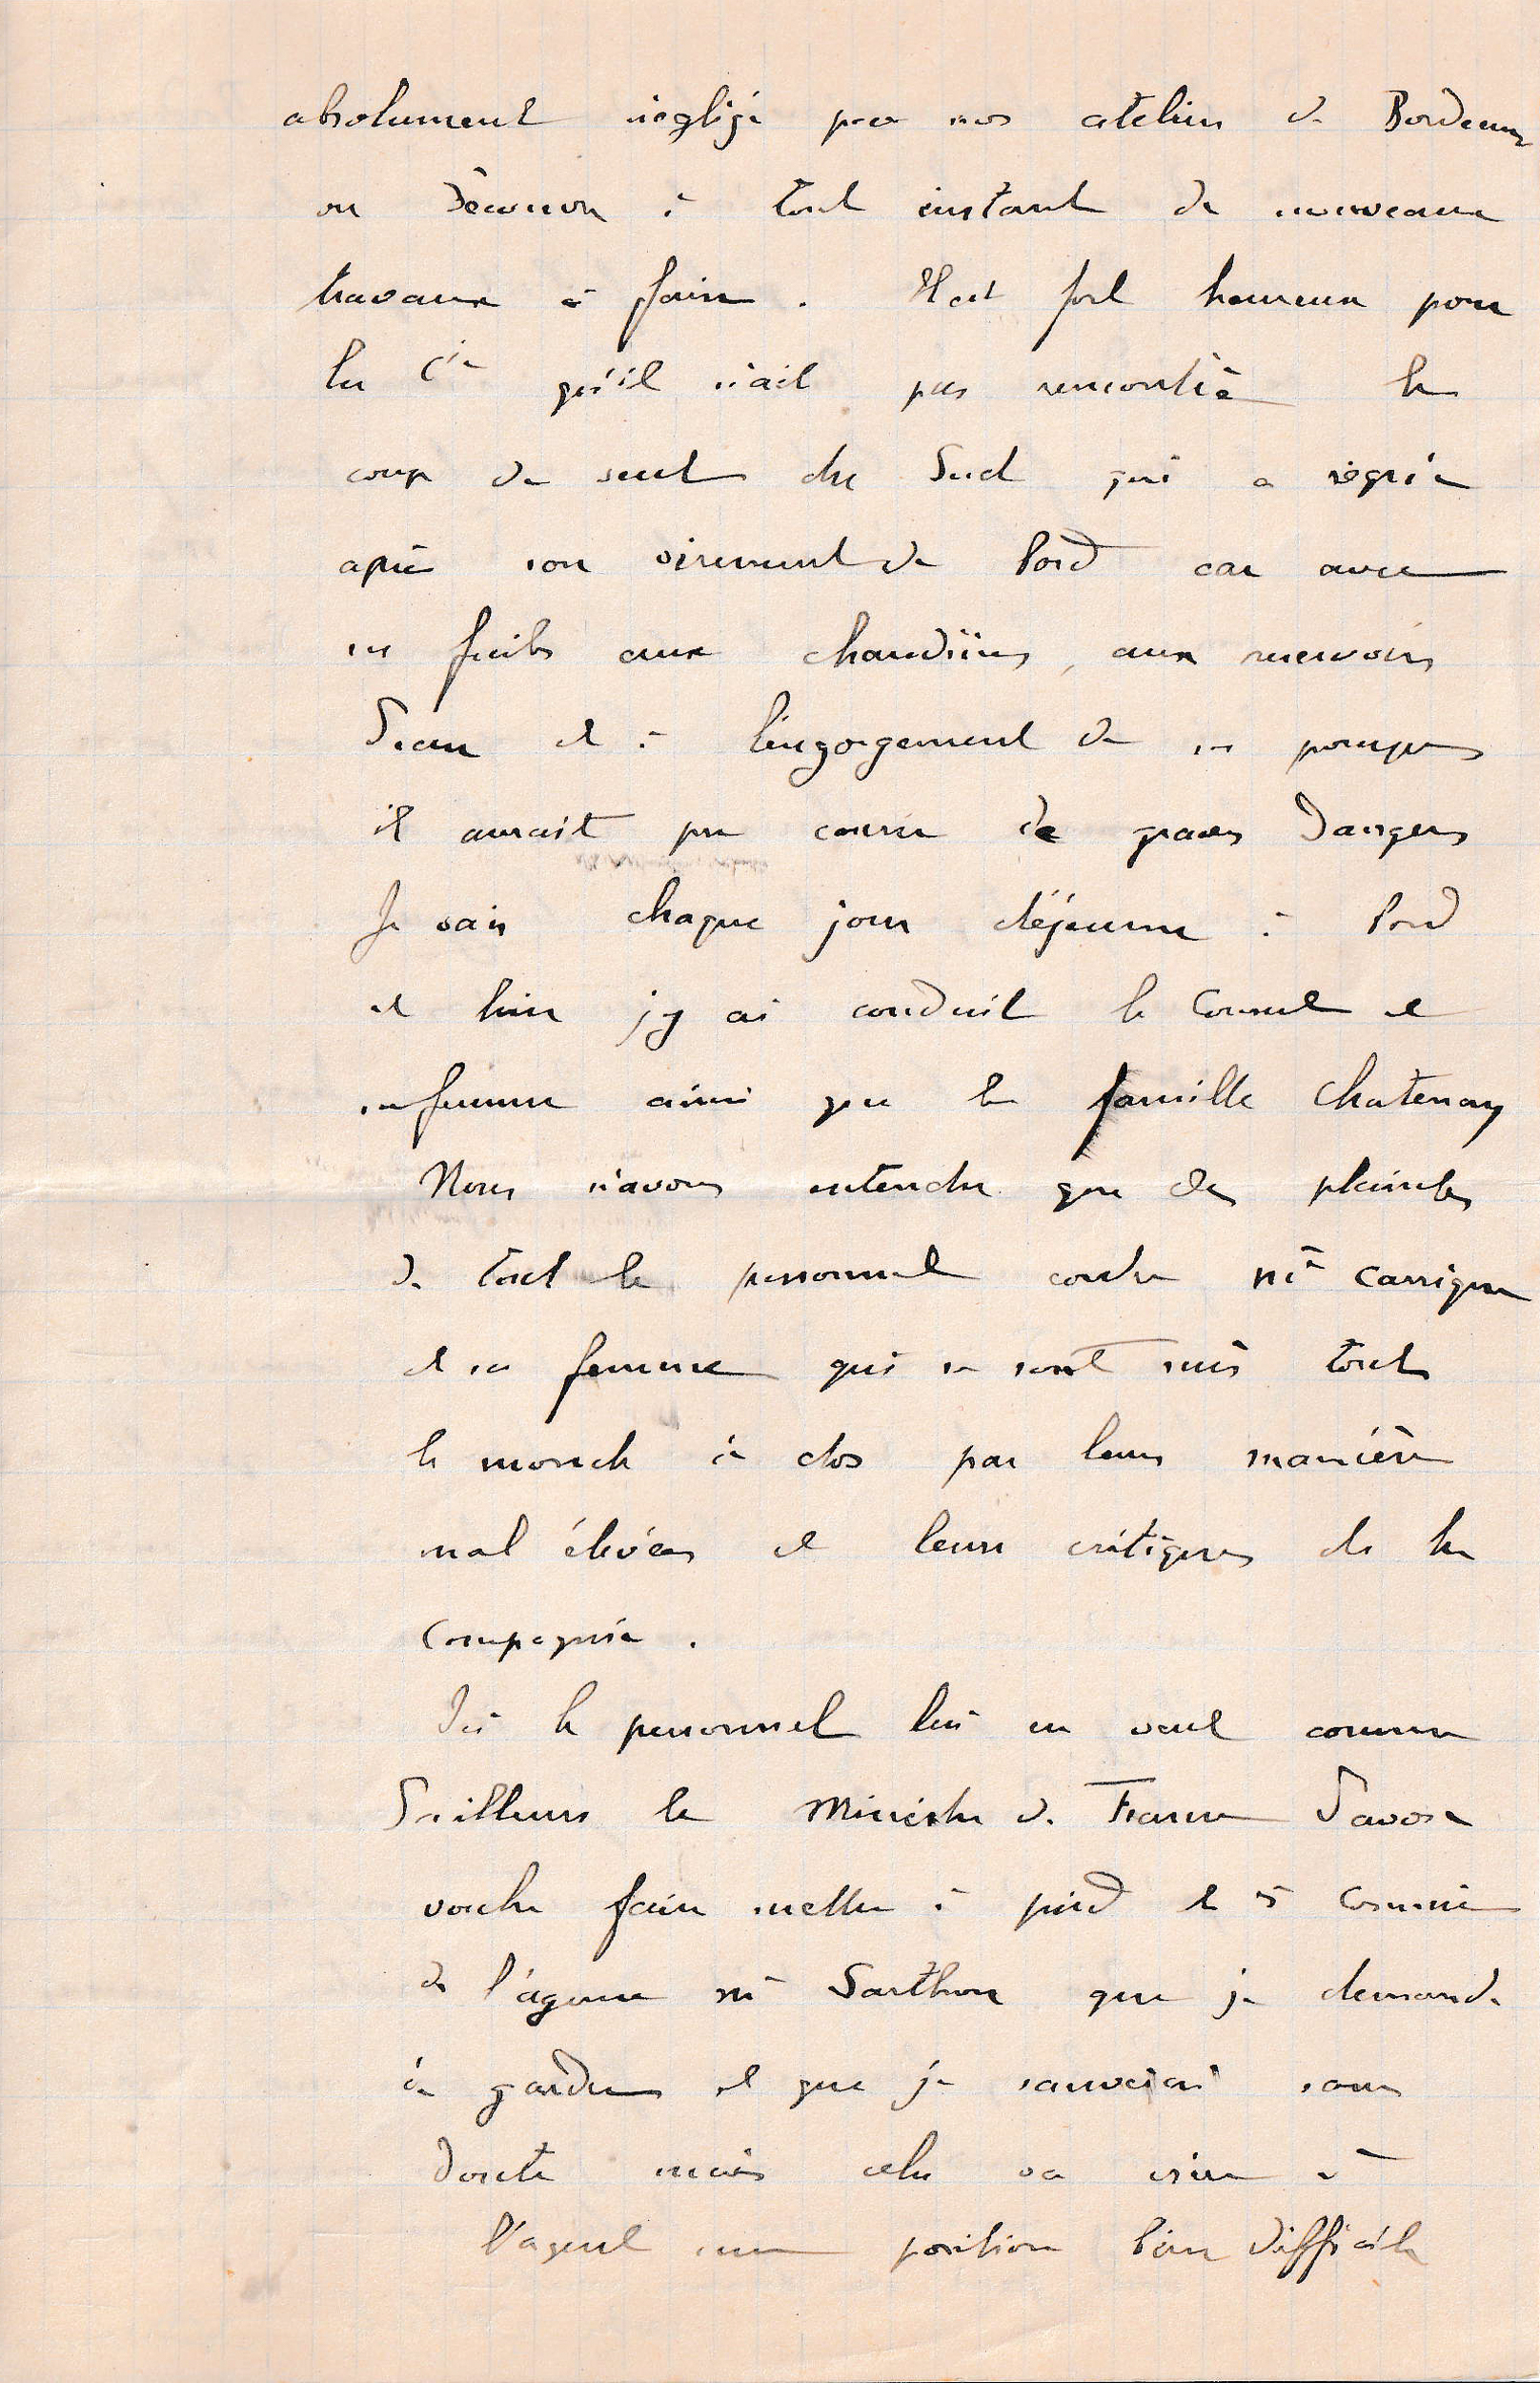 absolument négligé par nos ateliers de Bordeaux
on découvre à tout instant de nouveaux
travaux à faire. Il est fort heureux pour
la Cie qu'il n'ait pas rencontré le
coup de vent du Sud qui a régné
après son virement de bord car avec
ses fuites aux chaudières, aux reservoirs
d'eau et à l'engorgement de ses pompes
il aurait pu courir de graves dangers
Je vais chaque jour déjeuner à bord
et hier j'y ai conduit le Consul et
sa femme ainsi que la famille Chatenay
Nous n'avons entendu que des plaintes
de tout le personnel contre Mr Carrigue
et sa femme qui se sont mis tout
le monde à dos par leurs manières
mal élevées et leurs critiques de la
Compagnie.
Ici le personnel lui en veut comme
d'ailleurs le Ministre de France d'avoir
voulu faire mettre à pied le Commis
de l'agence Mr Sarthou que je demande
à garder et que je sauverai sans
doute mais cela va créer à
l'agent une position bien difficile